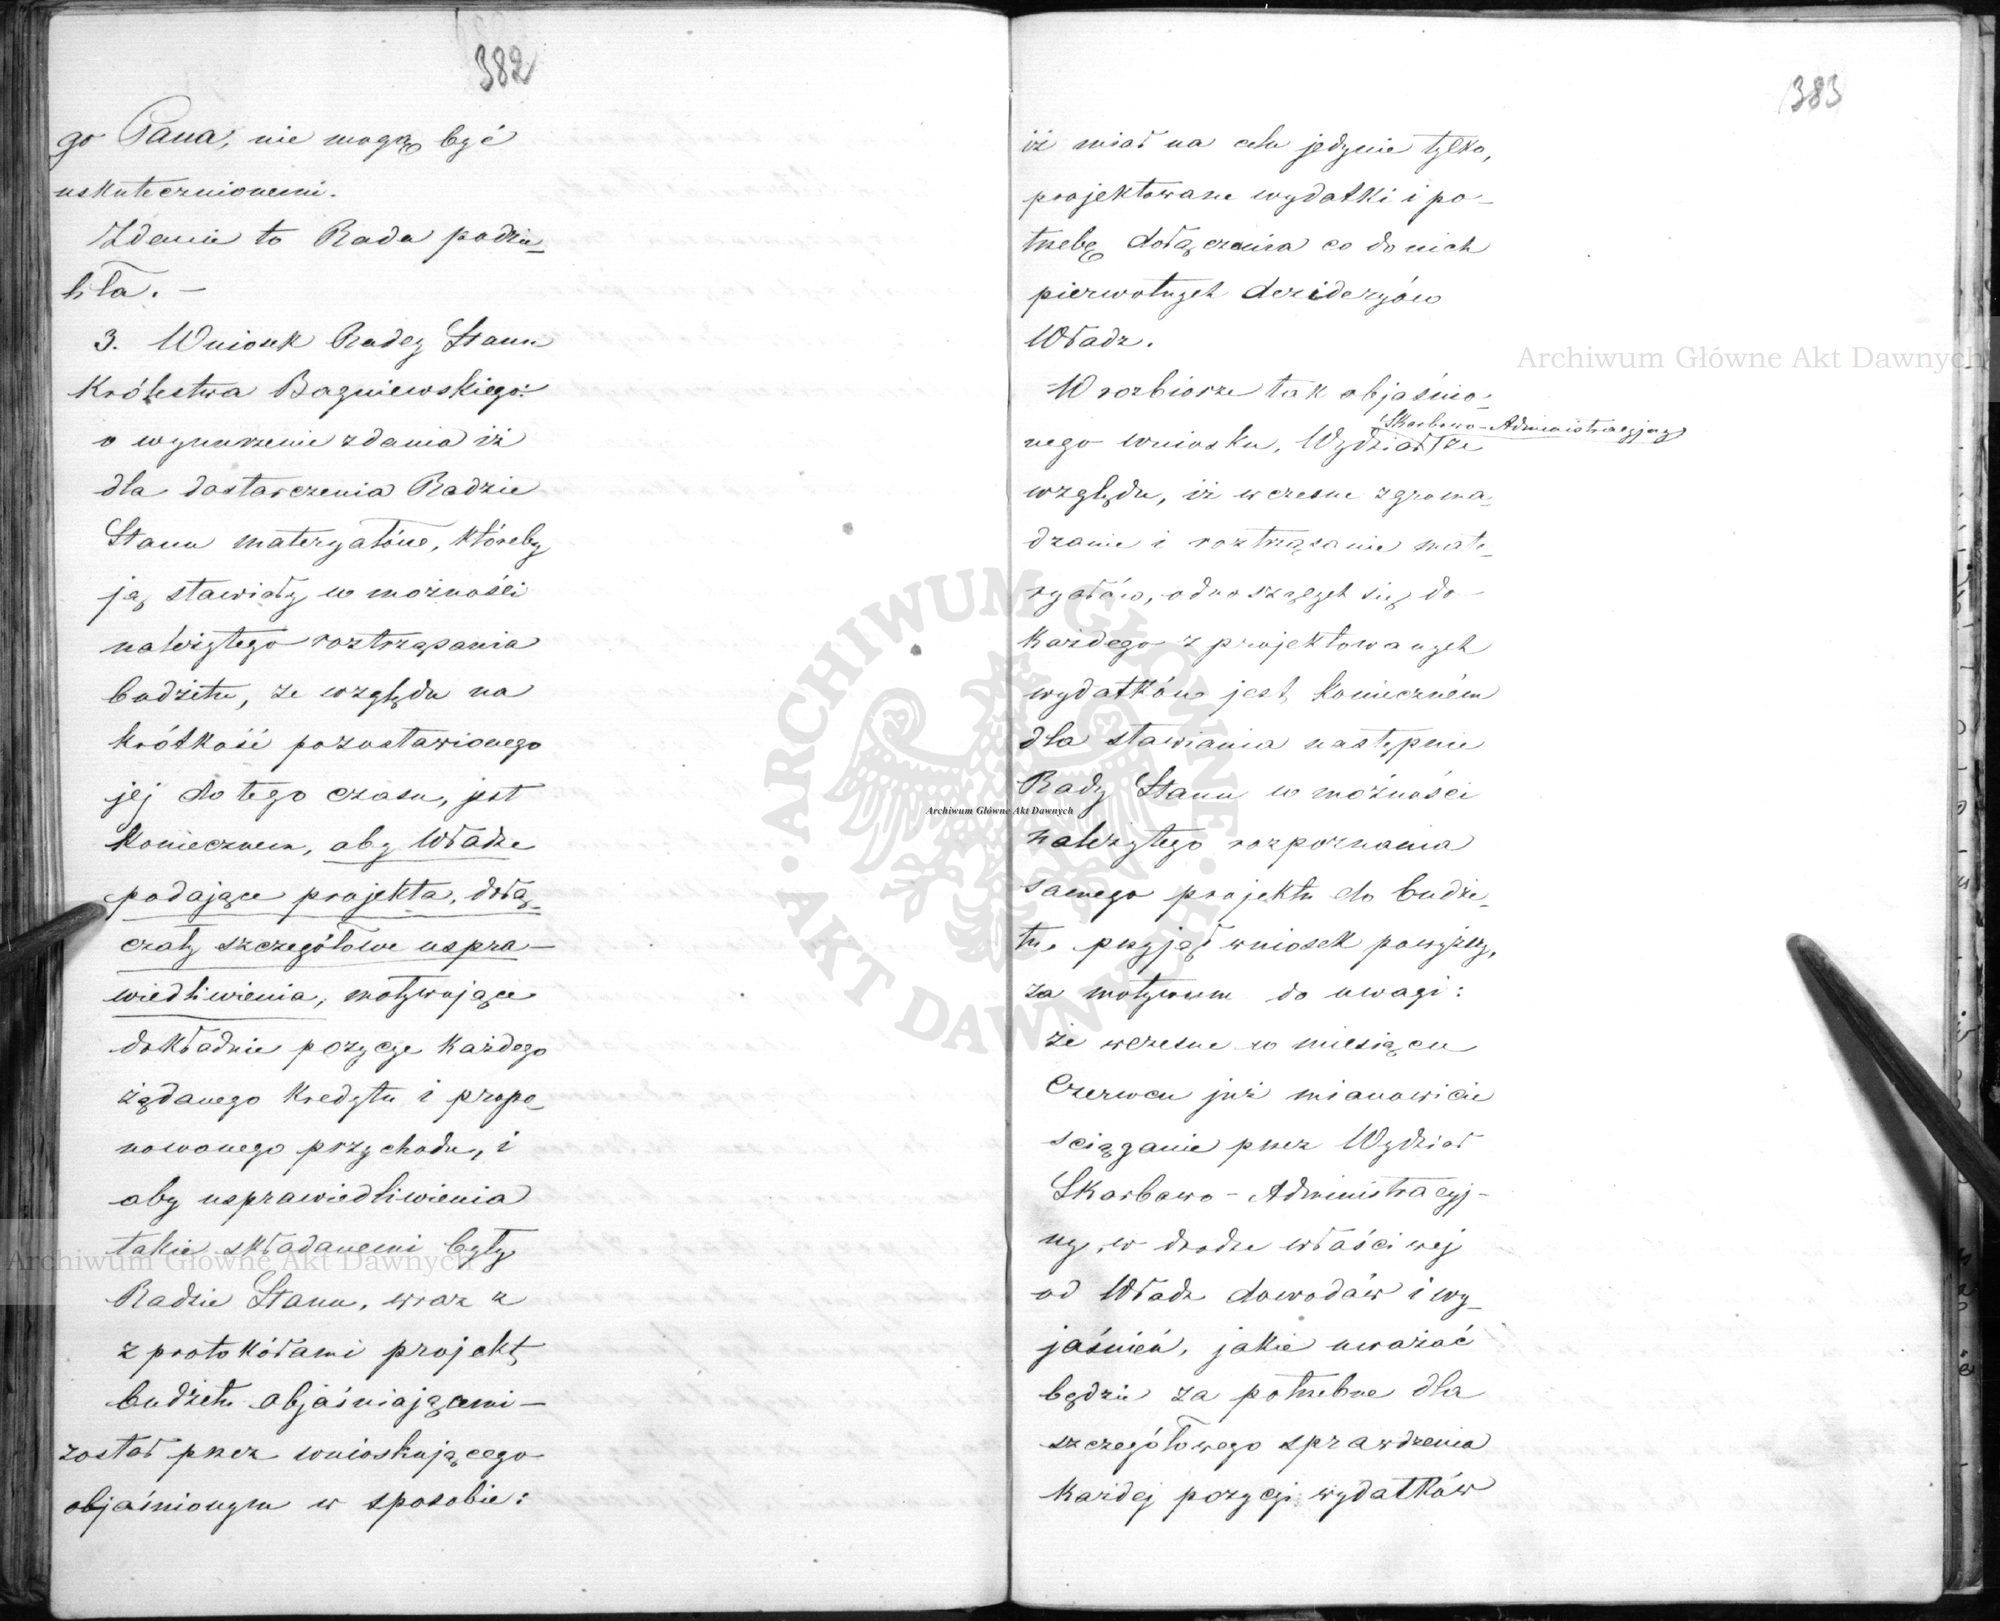 382
go Pana, nie mogą być
uskutecznionemi.
Zdanie to Rada podzie-
liła. —
3. Wniosek Radcy Stanu
Królestwa Bagniewskiego:
o wynurzenie zdania iż
dla dostarczenia Radzie
Stanu materyałów, któreby
ją stawiały w możności
należytego roztrząsania
budżetu, ze względu na
krótkość pozostawionego
jej do tego czasu, jest
koniecznem, aby Władze
podające projekta, dołą-
czały szczegółowe uspra-
wiedliwienia, motywujące
dokładnie pozycje każdego
żądanego kredytu i propo-
nowanego przychodu, i
aby usprawiedliwienia
takie składanemi były
Radzie Stanu, wraz z
z protokółami projekt
budżetu objaśniającemi —
został przez wnioskującego
objaśnionym w sposobie:
383
iż miał na celu jedynie tylko,
projektowane wydatki i po-
trzebę dołączenia co do nich
pierwotnych dezyderyów
Władz.
W rozbiorze tak objaśnio-
nego wniosku, Wydział Skarbowo-Administracyjny ze
względu, iż wczesne zgroma-
dzanie i roztrząsanie mate-
ryałów, odnoszących się do
każdego z projektowanych
wydatków jest koniecznem
dla stawiania następnie
Rady Stanu w możności
należytego rozpoznania
samego projektu do budże-
tu, przyjął wniosek powyższy,
za motywum do uwagi:
że wczesne w miesiącu
Czerwcu już mianowicie
ściąganie przez Wydział
Skarbowo-Administracyj-
ny, w drodze właściwej
od Władz dowodów i wy-
jaśnień, jakie uważać
będzie za potrzebne dla
szczegółowego sprawdzenia
każdej pozycji wydatków
Archiwum Główne Akt Dawnych
Archiwum Główne Akt Dawnych
Archiwum Główne Akt Dawnych
ARCHIWUM GŁÓWNE · AKT DAWNYCH ·